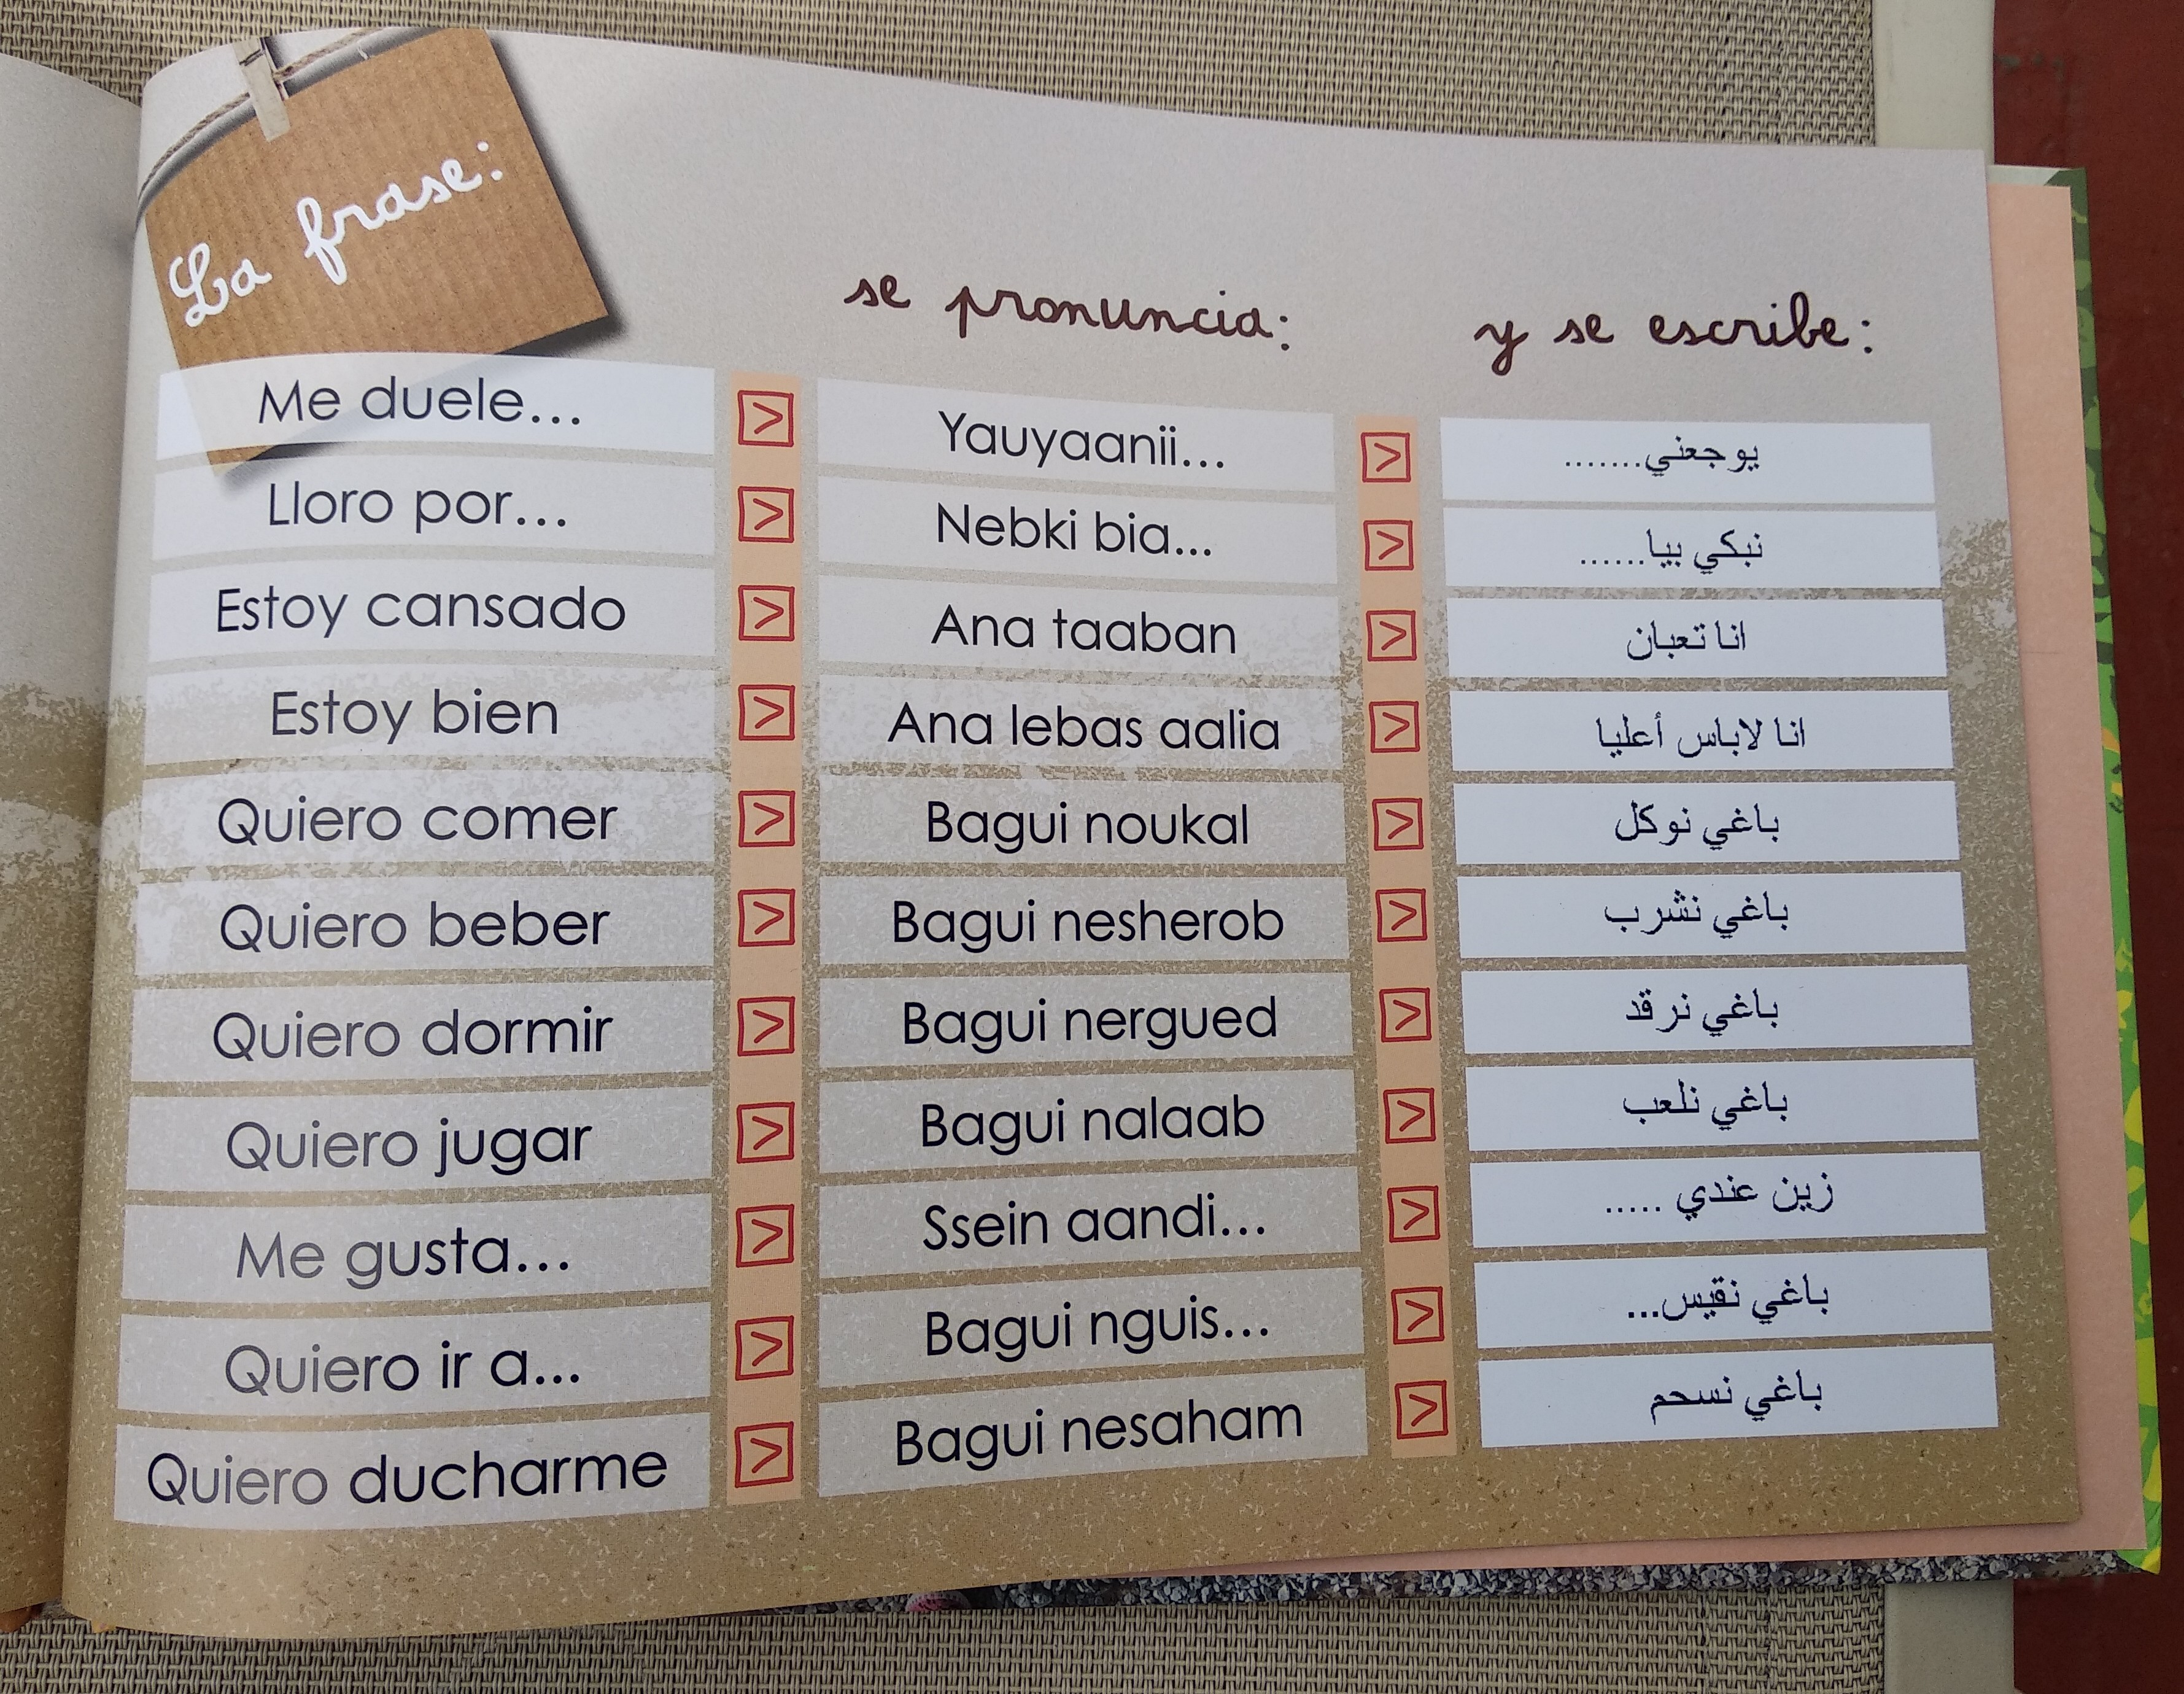 La frase:
se pronuncia:
y se escribe:
Me duele... > Yauyaanii... > يوجعني.......
Lloro por... > Nebki bia... > نبكي بيا......
Estoy cansado > Ana taaban > انا تعبان
Estoy bien > Ana lebas aalia > انا لاباس أعليا
Quiero comer > Bagui noukal > باغي نوكل
Quiero beber > Bagui nesherob > باغي نشرب
Quiero dormir > Bagui nergued > باغي نرقد
Quiero jugar > Bagui nalaab > باغي نلعب
Me gusta... > Ssein aandi... > زين عندي .....
Quiero ir a... > Bagui nguis... > باغي نقيس...
Quiero ducharme > Bagui nesaham > باغي نسحم